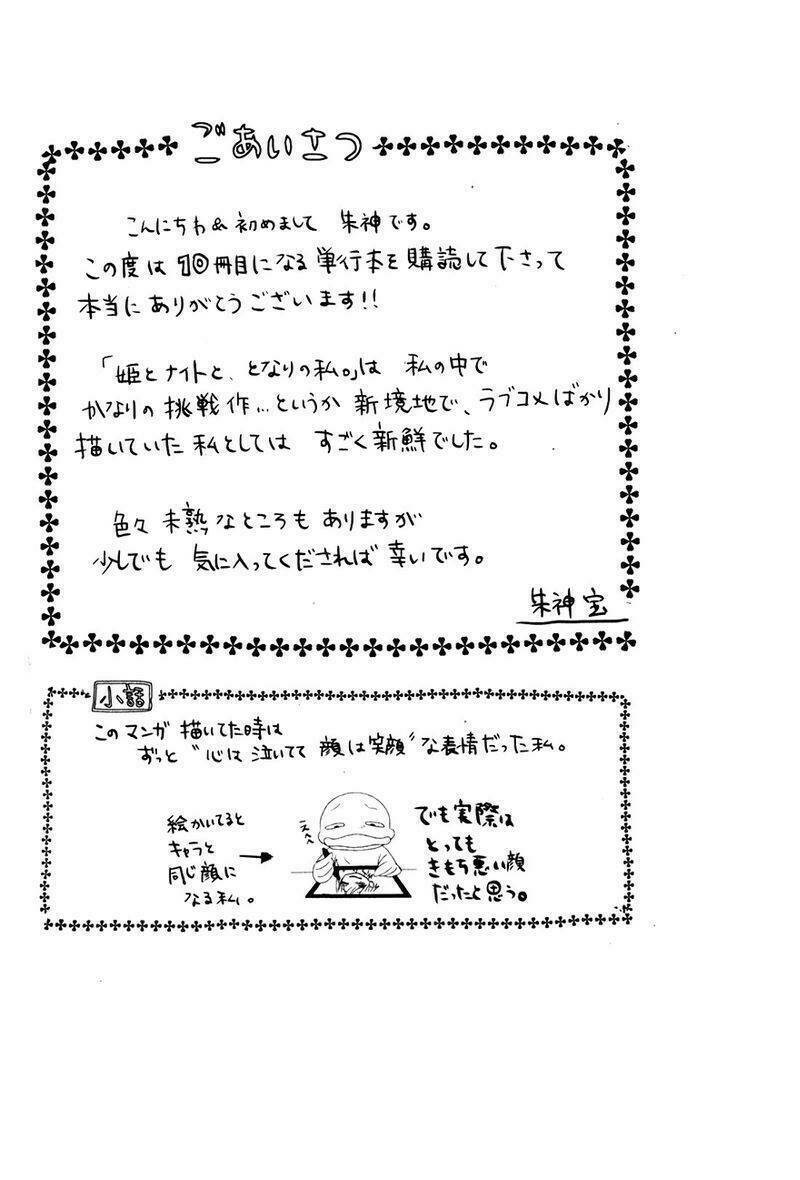 ごあいさつ
こんにちわ&初めまして 朱神です。
この度は10冊目になる単行本を購読して下さって
本当にありがとうございます!!
「姫とナイトと、となりの私。」は 私の中で
かなりの挑戦作…というか 新境地で、ラブコメばかり
描いていた私としては すごく新鮮でした。
色々 未熟なところも ありますが
少しでも 気に入ってくだされば 幸いです。
朱神 宝
小話
このマンガ 描いてた時は
ずっと“心は 泣いてて 顔は笑顔”な表情だった私。
絵かいてると
キャラと
同じ顔に
なる私。
へへへ
でも実際は
とっても
きもち悪い顔
だったと思う。